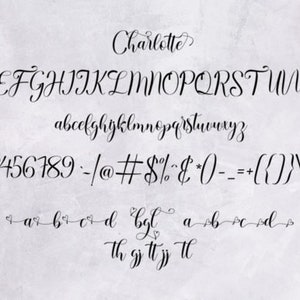 Charlotte
EFGHIJKLMNOPQRSTUV
abcdefghijklmnopqrstuvwxyz
456789:-/@#$%^&*()-_=+{[}]
a b c d bgl a b c d
th gj tt jj tl